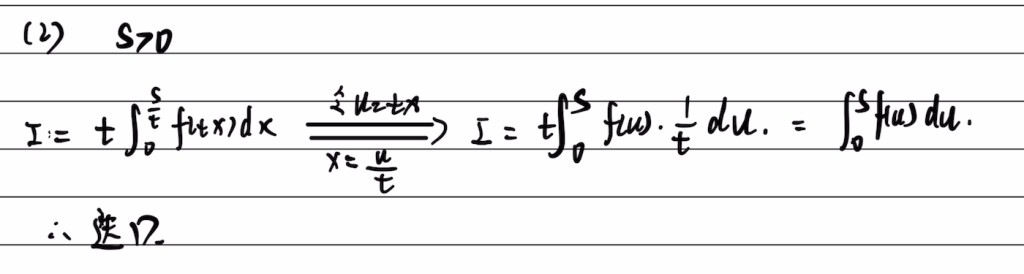 (2) S>0
I:= t∫₀^{s/t} f(tx)dx ⟹ (令 u=tx, x=u/t) I = t∫₀^S f(u)·1/t du. = ∫₀^S f(u)du.
∴ 选D.